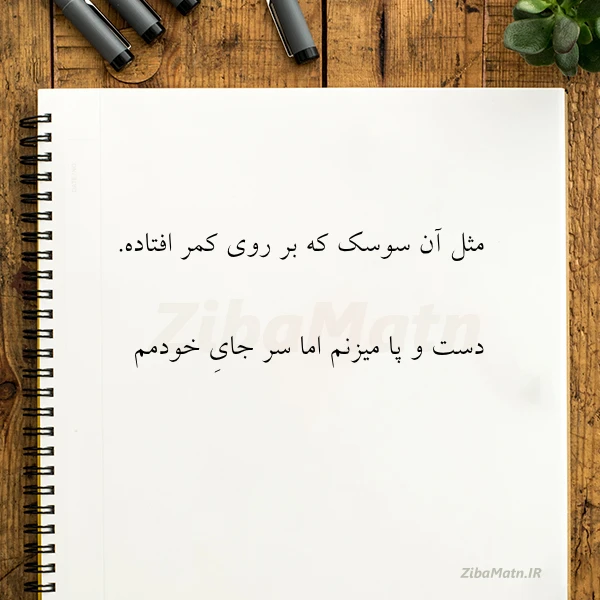 مثل آن سوسک که بر روی کمر افتاده.
ZibaMatn
دست و پا میزنم اما سر جایِ خودمم
ZibaMatn.IR